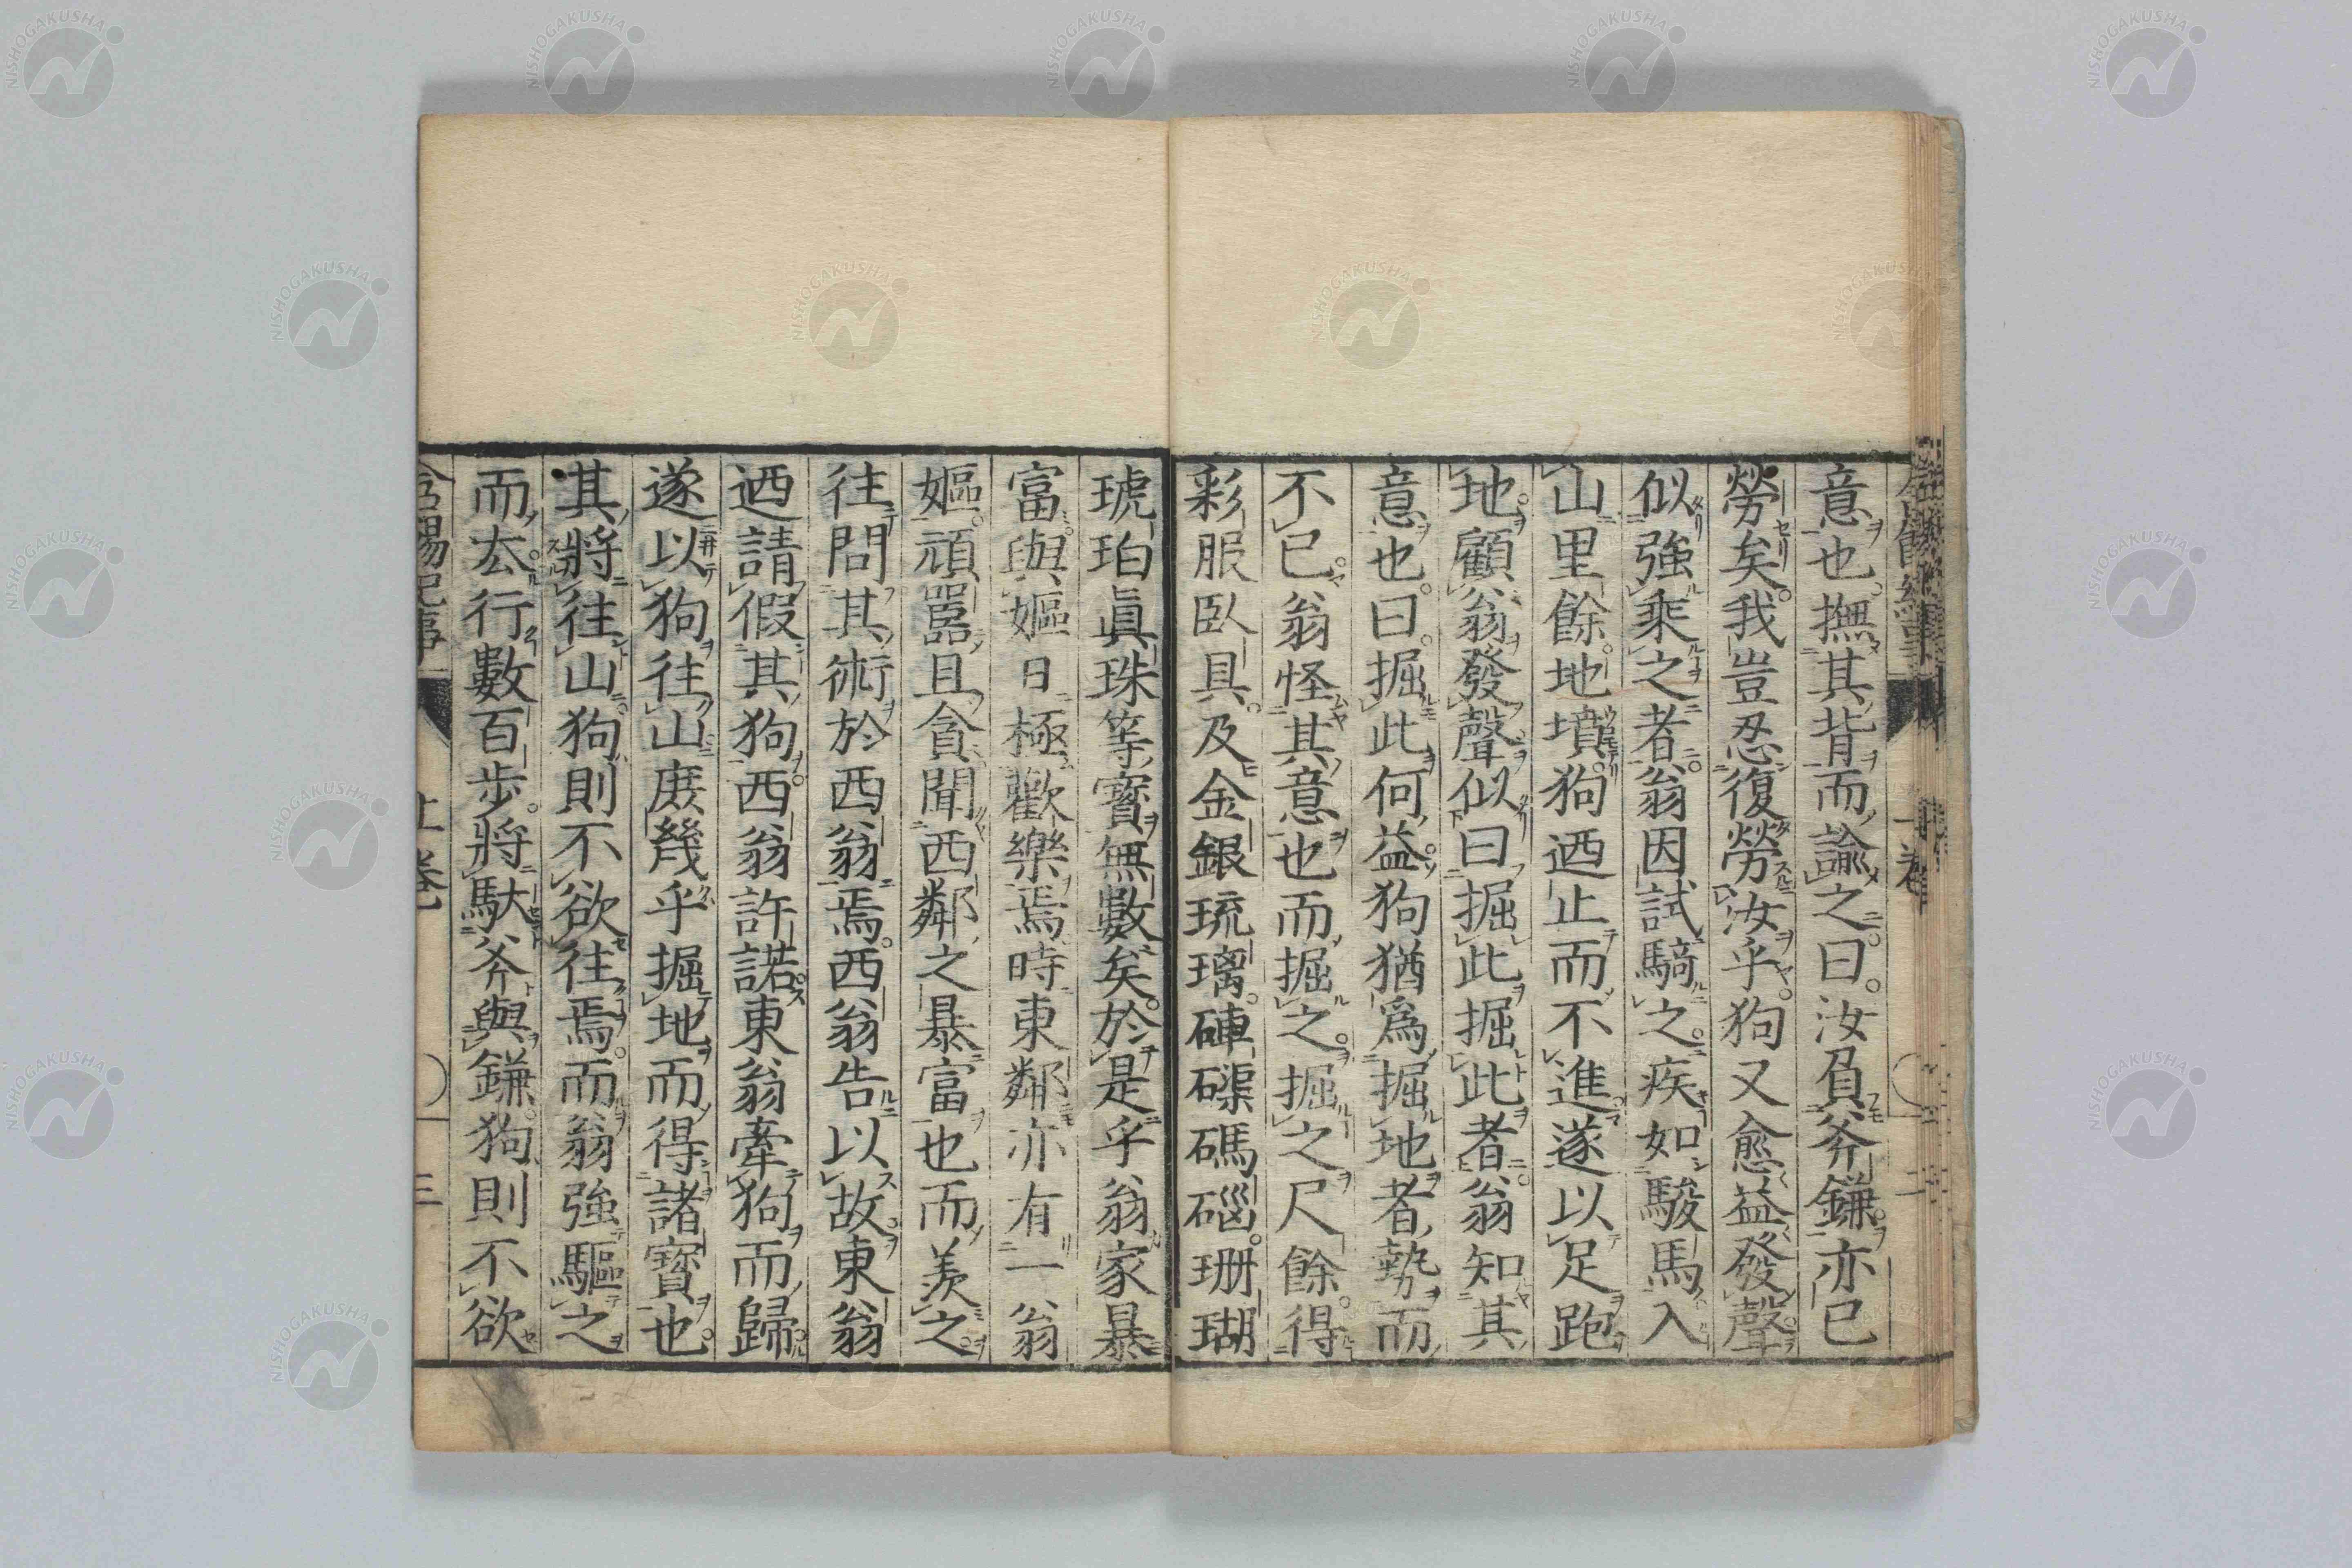 意也。撫其背而諭之曰。汝負斧鎌亦已
勞矣。我豈忍復勞汝乎。狗又愈益發聲
似強乘之者。翁因試騎之。疾如駿馬入
山里餘。地墳。狗迺止而不進。遂以足跑
地。顧翁發聲。似曰掘此掘此者。翁知其
意也。曰。掘此何益。狗猶為掘地者勢而
不已。翁怪其意也而掘之。掘之尺餘。得
彩服臥具。及金銀琉璃。硨磲碼碯。珊瑚
琥珀眞珠等寶無數矣。於是乎翁家暴
富。與嫗日極歡樂焉。時東鄰亦有一翁
嫗。頑嚚且貪。聞西鄰之暴富也而羨之。
往問其術於西翁焉。西翁告以故。東翁
迺請假其狗。西翁許諾。東翁牽狗而歸
遂以狗往山。庶幾乎掘地而得諸寶也。
其將往山。狗則不欲往焉。而翁強驅之
而去。行數百步。將馱斧與鎌。狗則不欲
上卷
三
NISHOGAKUSHA